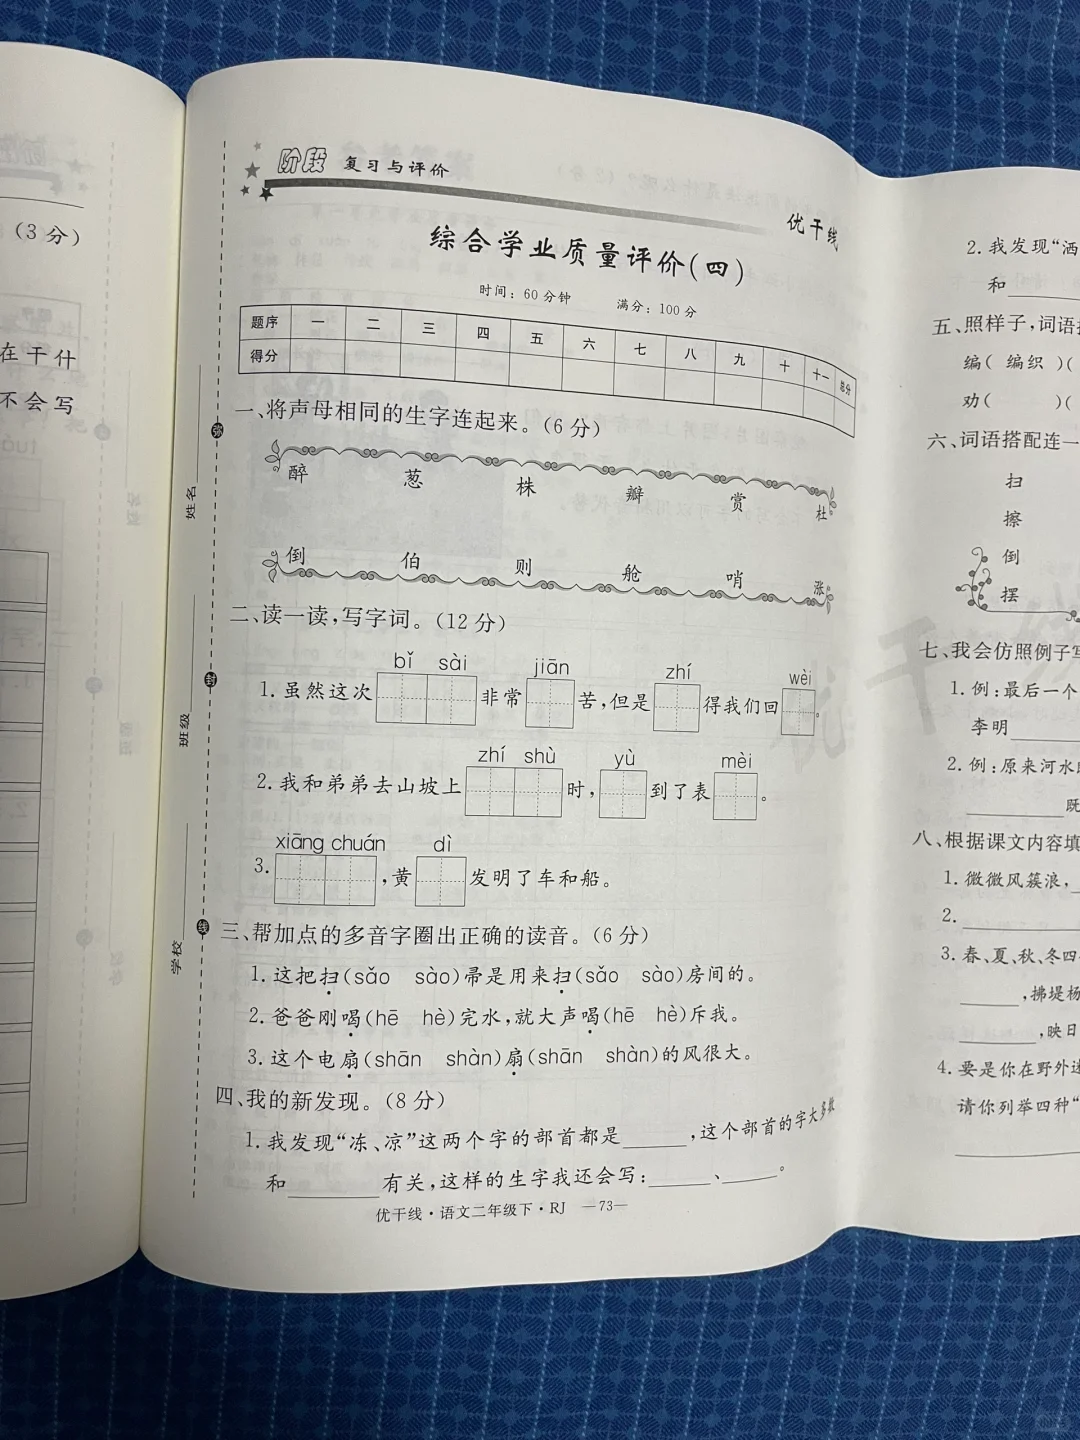 （3分）
在干什
不会写
阶段 复习与评价
优干线
综合学业质量评价(四)
时间：60分钟 满分：100分
题序 一 二 三 四 五 六 七 八 九 十 十一 总分
得分
姓名
班级
学校
一、将声母相同的生字连起来。（6分）
醉 葱 株 瓣 赏 杜
倒 伯 则 舱 哨 涨
二、读一读，写字词。（12分）
bǐ sài jiān zhí wèi
1. 虽然这次 非常 苦，但是 得我们回 。
zhí shù yù mèi
2. 我和弟弟去山坡上 时， 到了表 。
xiāng chuán dì
3. ，黄 发明了车和船。
三、帮加点的多音字圈出正确的读音。（6分）
1. 这把扫(sǎo sào)帚是用来扫(sǎo sào)房间的。
2. 爸爸刚喝(hē hè)完水，就大声喝(hē hè)斥我。
3. 这个电扇(shān shàn)扇(shān shàn)的风很大。
四、我的新发现。（8分）
1. 我发现“冻、凉”这两个字的部首都是______，这个部首的字大多数
和________有关，这样的生字我还会写：______、______。
优干线·语文二年级下·RJ —73—
2. 我发现“洒
和
五、照样子，词语
编( 编织 )(
劝( )(
六、词语搭配连一
扫
擦
倒
摆
七、我会仿照例子写
1. 例：最后一个
李明
2. 例：原来河水
既
八、根据课文内容填
1. 微微风簇浪，
2.
3. 春、夏、秋、冬四
，拂堤杨
，映日
4. 要是你在野外迷
请你列举四种“